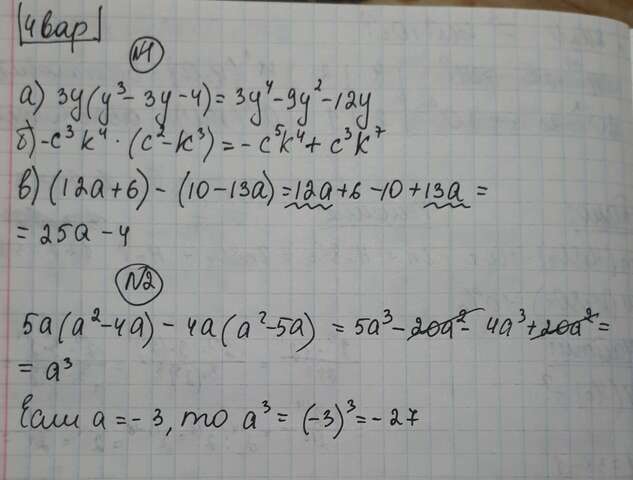 4 вар
№1
а) 3y(y³ - 3y - 4) = 3y⁴ - 9y² - 12y
б) -c³k⁴ · (c² - k³) = -c⁵k⁴ + c³k⁷
в) (12a + 6) - (10 - 13a) = 12a + 6 - 10 + 13a =
= 25a - 4
№2
5a(a² - 4a) - 4a(a² - 5a) = 5a³ - 20a² - 4a³ + 20a² =
= a³
Если a = -3, то a³ = (-3)³ = -27